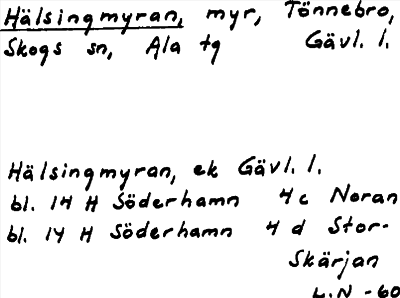 Hälsingmyran, myr, Tönnebro,
Skogs sn, Ala tg Gävl. l.
Hälsingmyran, ek Gävl. l.
bl. 14 H Söderhamn 4 c Noran
bl. 14 H Söderhamn 4 d Stor-
Skärjan
L.N -60